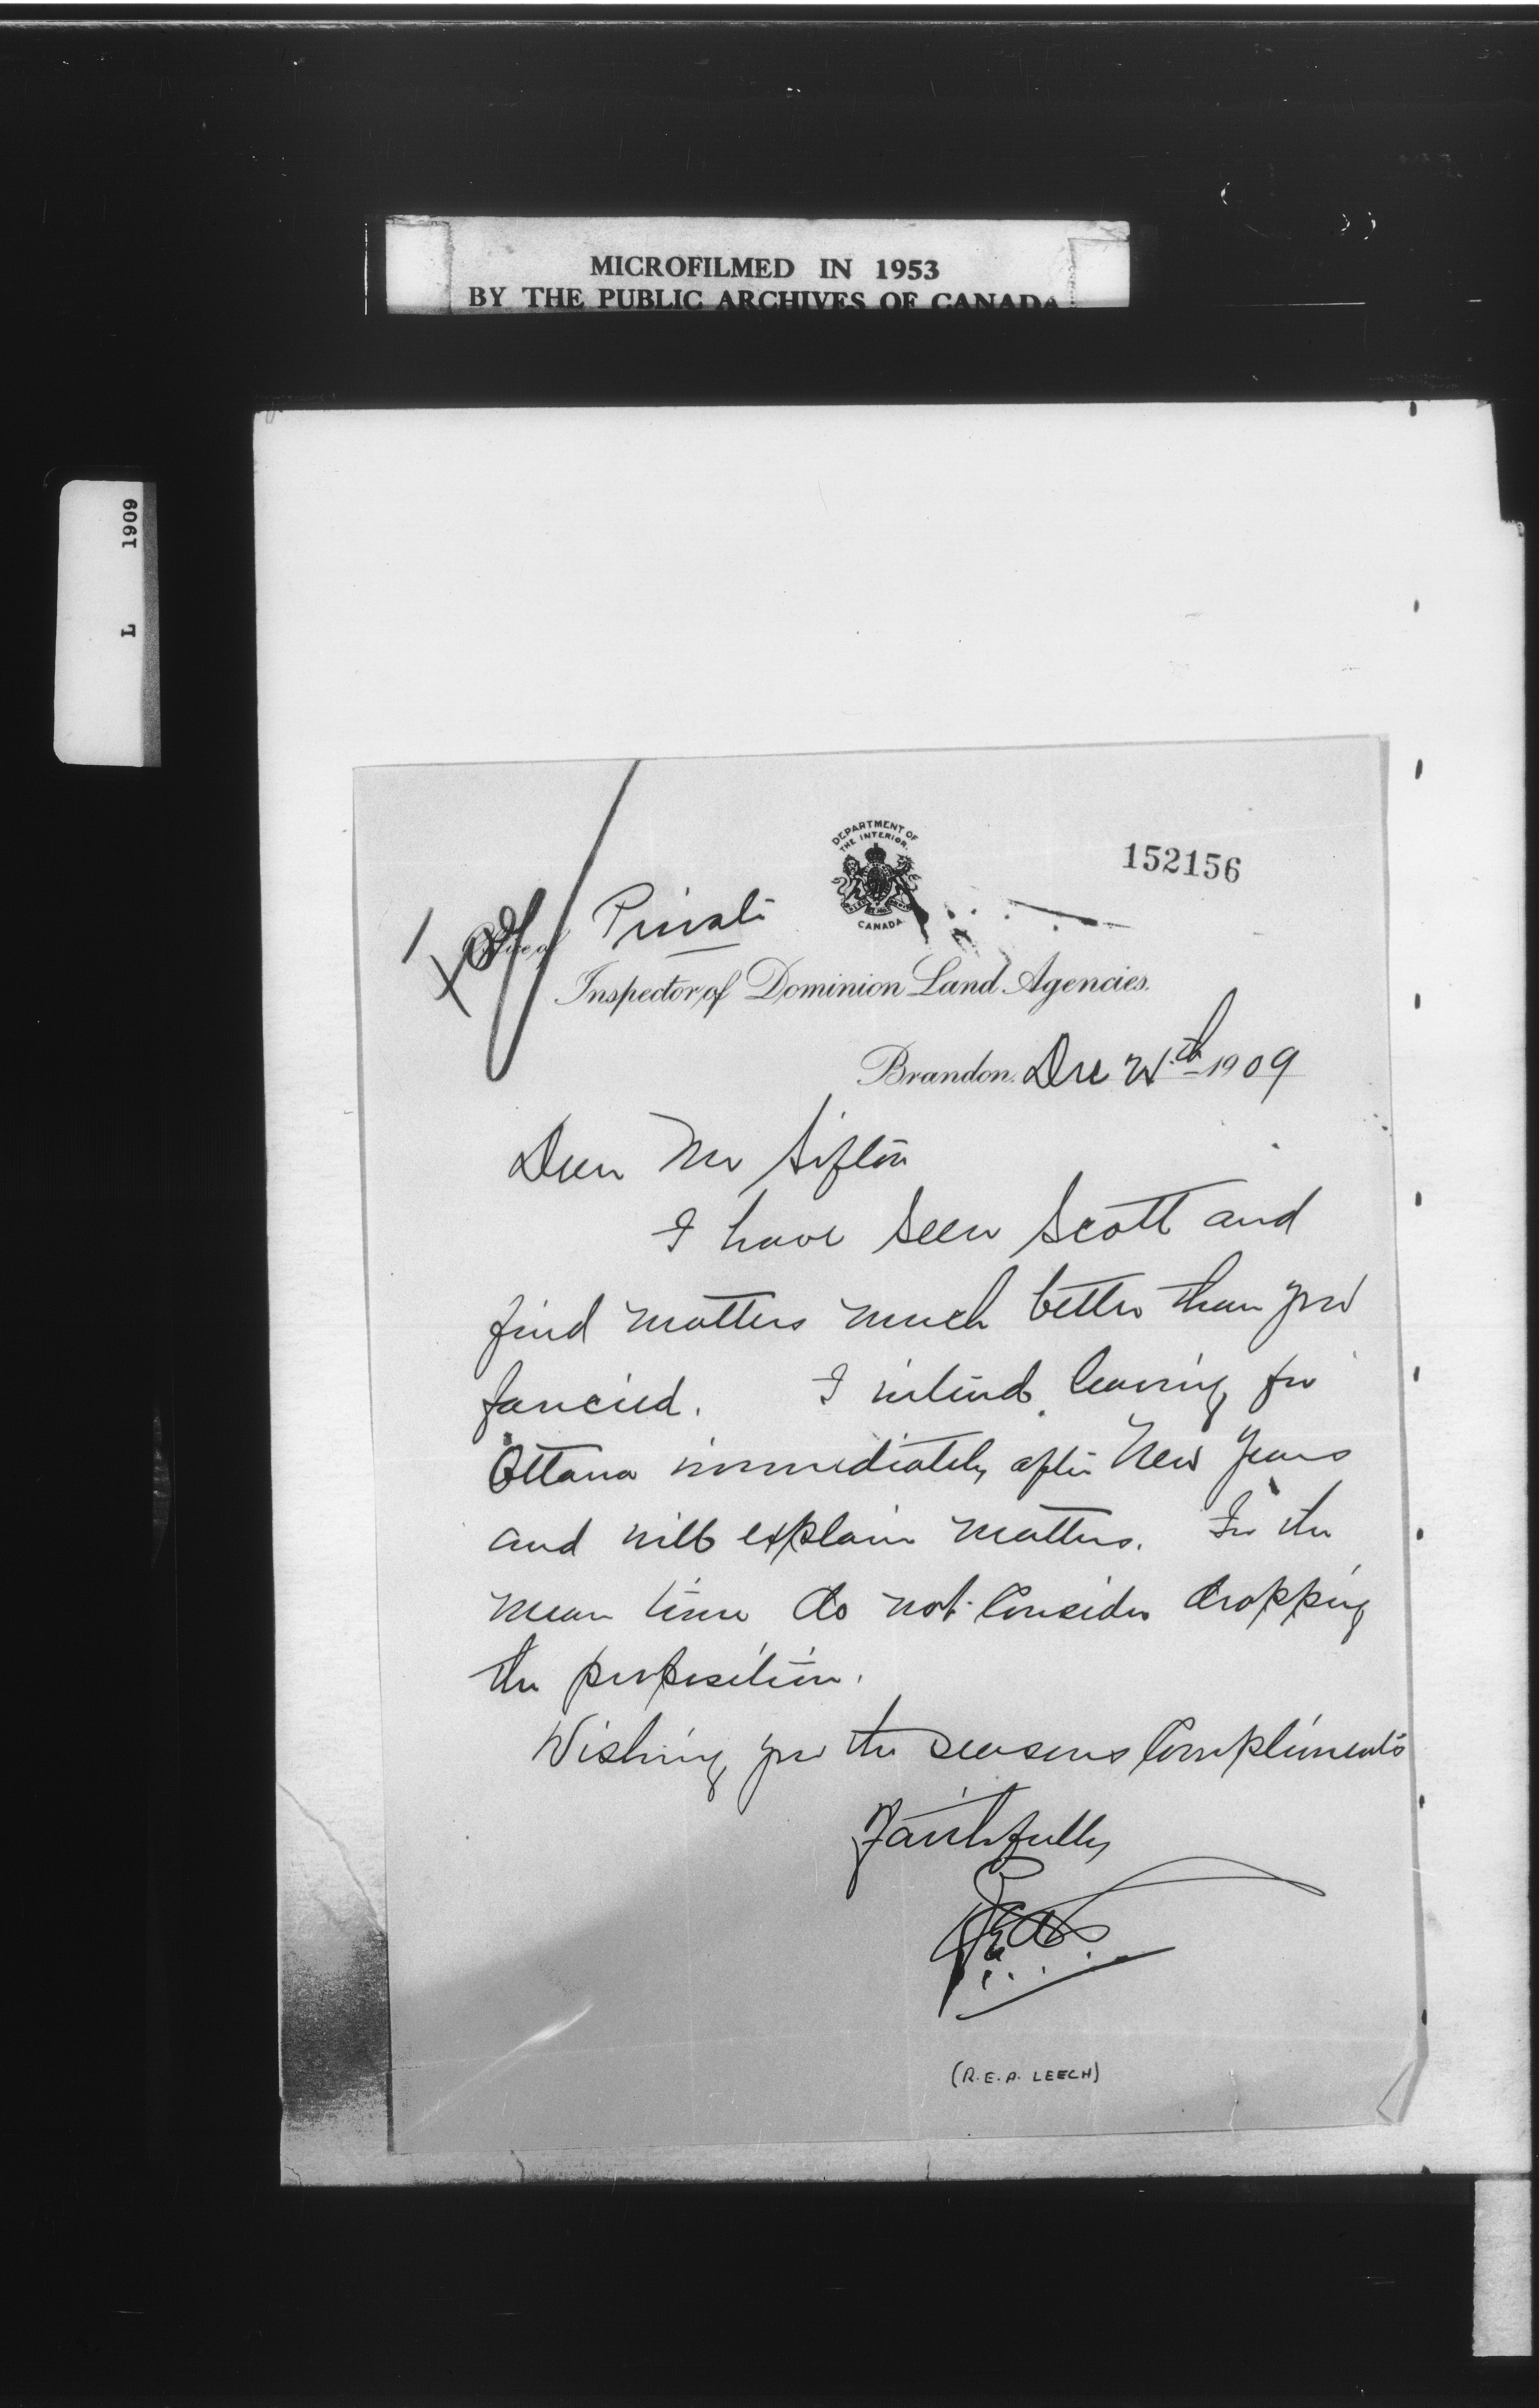 MICROFILMED IN 1953
BY THE PUBLIC ARCHIVES OF CANADA
L 1909
DEPARTMENT OF
THE INTERIOR.
CANADA
152156
Office of
Private
Inspector of Dominion Land Agencies.
Brandon. Dec th 1909
Dear Mr Sifton
I have seen Scott and
find matters much better than you
fancied. I intend leaving for
Ottawa immediately after New Years
and will explain matters. In the
mean time do not consider dropping
the proposition.
Wishing you the seasons Compliments
Faithfully
(R.E.A. LEECH)